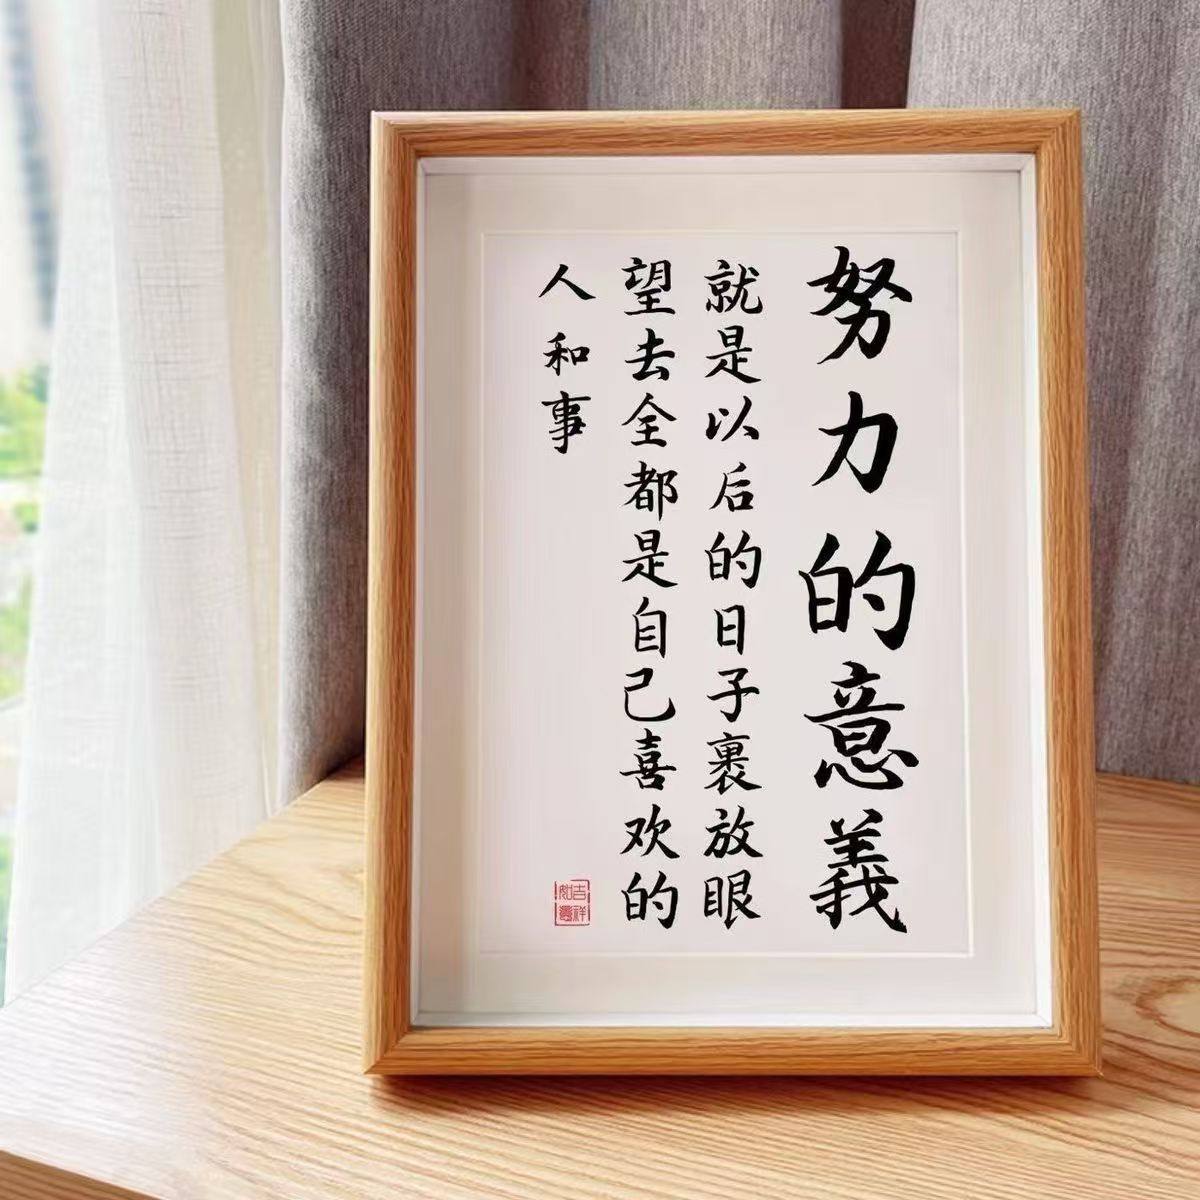 努力的意義
就是以后的日子裏放眼
望去全都是自己喜欢的
人和事
吉祥如意